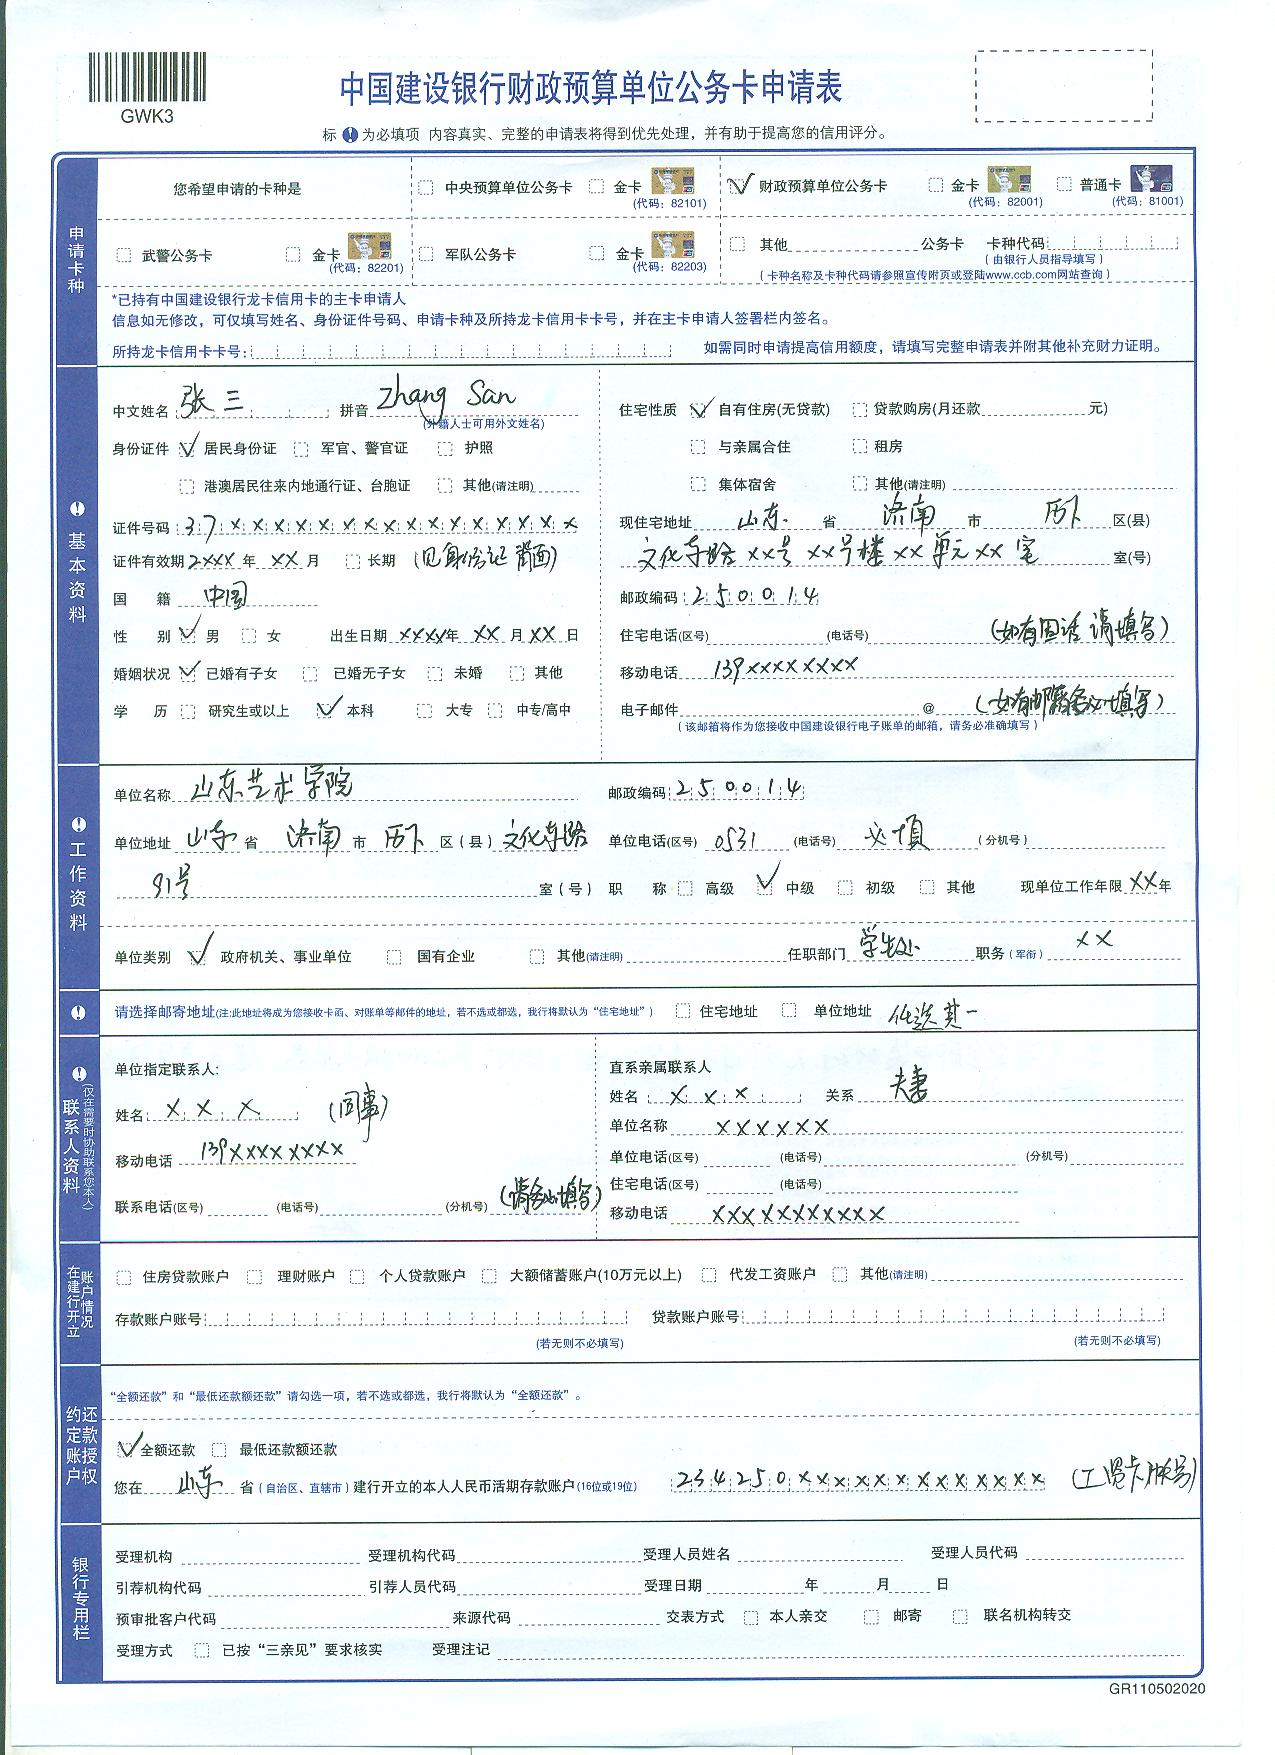 GWK3
中国建设银行财政预算单位公务卡申请表
标 ! 为必填项 内容真实、完整的申请表将得到优先处理，并有助于提高您的信用评分。
申请卡种
您希望申请的卡种是 中央预算单位公务卡 金卡 (代码：82101) 财政预算单位公务卡 金卡 (代码：82001) 普通卡 (代码：81001)
武警公务卡 金卡 (代码：82201) 军队公务卡 金卡 (代码：82203) 其他 公务卡 卡种代码
(由银行人员指导填写)
(卡种名称及卡种代码请参照宣传附页或登陆www.ccb.com网站查询)
*已持有中国建设银行龙卡信用卡的主卡申请人
信息如无修改，可仅填写姓名、身份证件号码、申请卡种及所持龙卡信用卡卡号，并在主卡申请人签署栏内签名。
所持龙卡信用卡卡号： 如需同时申请提高信用额度，请填写完整申请表并附其他补充财力证明。
! 基本资料
中文姓名 张三 拼音 Zhang San
(外籍人士可用外文姓名)
身份证件 居民身份证 军官、警官证 护照
港澳居民往来内地通行证、台胞证 其他(请注明)
证件号码 37xxxxxxxxxxxxxxxx
证件有效期 2xxx 年 xx 月 长期 (见身份证背面)
国籍 中国
性别 男 女 出生日期 xxxx 年 xx 月 xx 日
婚姻状况 已婚有子女 已婚无子女 未婚 其他
学历 研究生或以上 本科 大专 中专/高中
住宅性质 自有住房(无贷款) 贷款购房(月还款 元)
与亲属合住 租房
集体宿舍 其他(请注明)
现住宅地址 山东 省 济南 市 历下 区(县)
文化东路xx号xx号楼xx单元xx室 室(号)
邮政编码 250014
住宅电话(区号) (电话号) (如有固话请填写)
移动电话 139xxxxxxxx
电子邮件 @ (如有邮箱务必填写)
(该邮箱将作为您接收中国建设银行电子账单的邮箱，请务必准确填写)
! 工作资料
单位名称 山东艺术学院 邮政编码 250014
单位地址 山东 省 济南 市 历下 区(县) 文化东路 单位电话(区号) 0531 (电话号) 必填 (分机号)
91号 室(号) 职称 高级 中级 初级 其他 现单位工作年限 xx 年
单位类别 政府机关、事业单位 国有企业 其他(请注明) 任职部门 学生处 职务(军衔) xx
! 请选择邮寄地址(注:此地址将成为您接收卡函、对账单等邮件的地址，若不选或都选，我行将默认为“住宅地址”) 住宅地址 单位地址 任选其一
! 联系人资料
(仅在需要时协助联系您本人)
单位指定联系人:
姓名 xxx (同事)
移动电话 139xxxxxxxx
联系电话(区号) (电话号) (分机号) (请务必填写)
直系亲属联系人
姓名 xxx 关系 夫妻
单位名称 xxxxxx
单位电话(区号) (电话号) (分机号)
住宅电话(区号) (电话号)
移动电话 xxxxxxxxxxx
在建行开立账户情况
住房贷款账户 理财账户 个人贷款账户 大额储蓄账户(10万元以上) 代发工资账户 其他(请注明)
存款账户账号 贷款账户账号
(若无则不必填写) (若无则不必填写)
约定账户还款授权
“全额还款”和“最低还款额还款”请勾选一项，若不选或都选，我行将默认为“全额还款”。
全额还款 最低还款额还款
您在 山东 省(自治区、直辖市)建行开立的本人人民币活期存款账户(16位或19位) 234250xxxxxxxxxxxxx (工资卡账号)
银行专用栏
受理机构 受理机构代码 受理人员姓名 受理人员代码
引荐机构代码 引荐人员代码 受理日期 年 月 日
预审批客户代码 来源代码 交表方式 本人亲交 邮寄 联名机构转交
受理方式 已按“三亲见”要求核实 受理注记
GR110502020